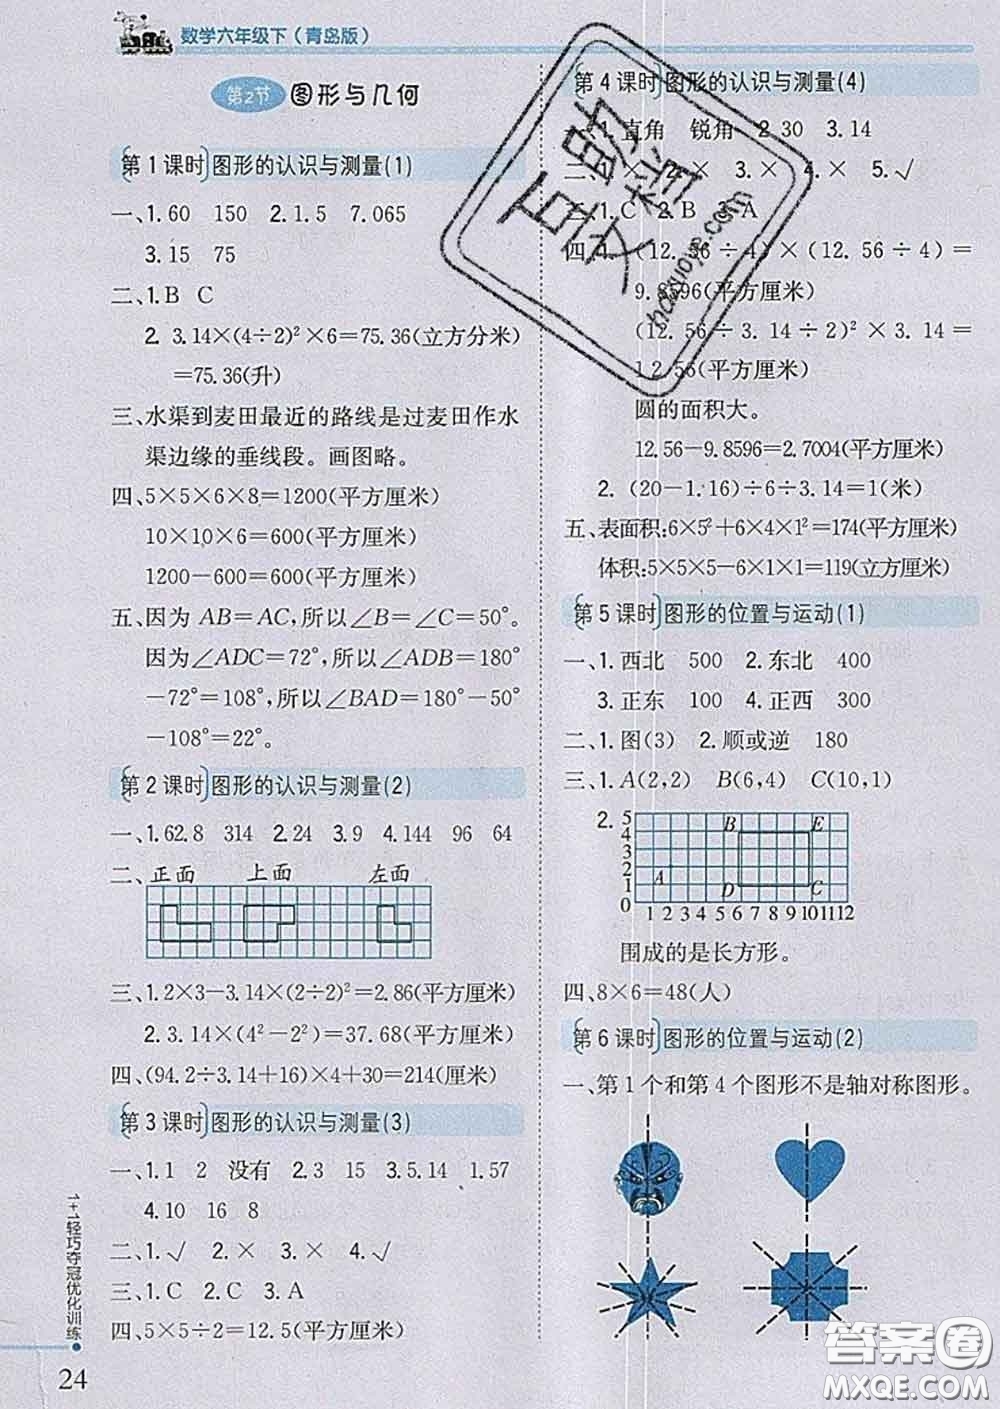 数学六年级下（青岛版）
第2节 图形与几何
第1课时 图形的认识与测量(1)
一、1.60 150 2.1.5 7.065
3.15 75
二、1.B C
2. 3.14×(4÷2)²×6=75.36(立方分米)
=75.36(升)
三、水渠到麦田最近的路线是过麦田作水
渠边缘的垂线段。画图略。
四、5×5×6×8=1200(平方厘米)
10×10×6=600(平方厘米)
1200-600=600(平方厘米)
五、因为AB=AC,所以∠B=∠C=50°。
因为∠ADC=72°,所以∠ADB=180°
-72°=108°,所以∠BAD=180°-50°
-108°=22°。
第2课时 图形的认识与测量(2)
一、1.62.8 314 2.24 3.9 4.144 96 64
二、正面 上面 左面
三、1.2×3-3.14×(2÷2)²=2.86(平方厘米)
2.3.14×(4²-2²)=37.68(平方厘米)
四、(94.2÷3.14+16)×4+30=214(厘米)
第3课时 图形的认识与测量(3)
一、1.1 2 没有 2.3 15 3.5.14 1.57
4.10 16 8
二、1.√ 2.× 3.× 4.√
三、1.C 2.C 3.A
四、5×5÷2=12.5(平方厘米)
1+1轻巧夺冠优化训练
24
第4课时 图形的认识与测量(4)
1.直角 锐角 2.30 3.14
2.× 3.× 4.× 5.√
三、1.C 2.B 3.A
四、1. (12.56÷4)×(12.56÷4)=
9.8596(平方厘米)
(12.56÷3.14÷2)²×3.14=
12.56(平方厘米)
圆的面积大。
12.56-9.8596=2.7004(平方厘米)
2. (20-1.16)÷6÷3.14=1(米)
五、表面积:6×5²+6×4×1²=174(平方厘米)
体积:5×5×5-6×1×1=119(立方厘米)
第5课时 图形的位置与运动(1)
一、1.西北 500 2.东北 400
3.正东 100 4.正西 300
二、1.图(3) 2.顺或逆 180
三、1.A(2,2) B(6,4) C(10,1)
2. 5
4 B E
3
2 A
1 D C
0 1 2 3 4 5 6 7 8 9 10 11 12
围成的是长方形。
四、8×6=48(人)
第6课时 图形的位置与运动(2)
一、第1个和第4个图形不是轴对称图形。
答案圈
MXQE.COM